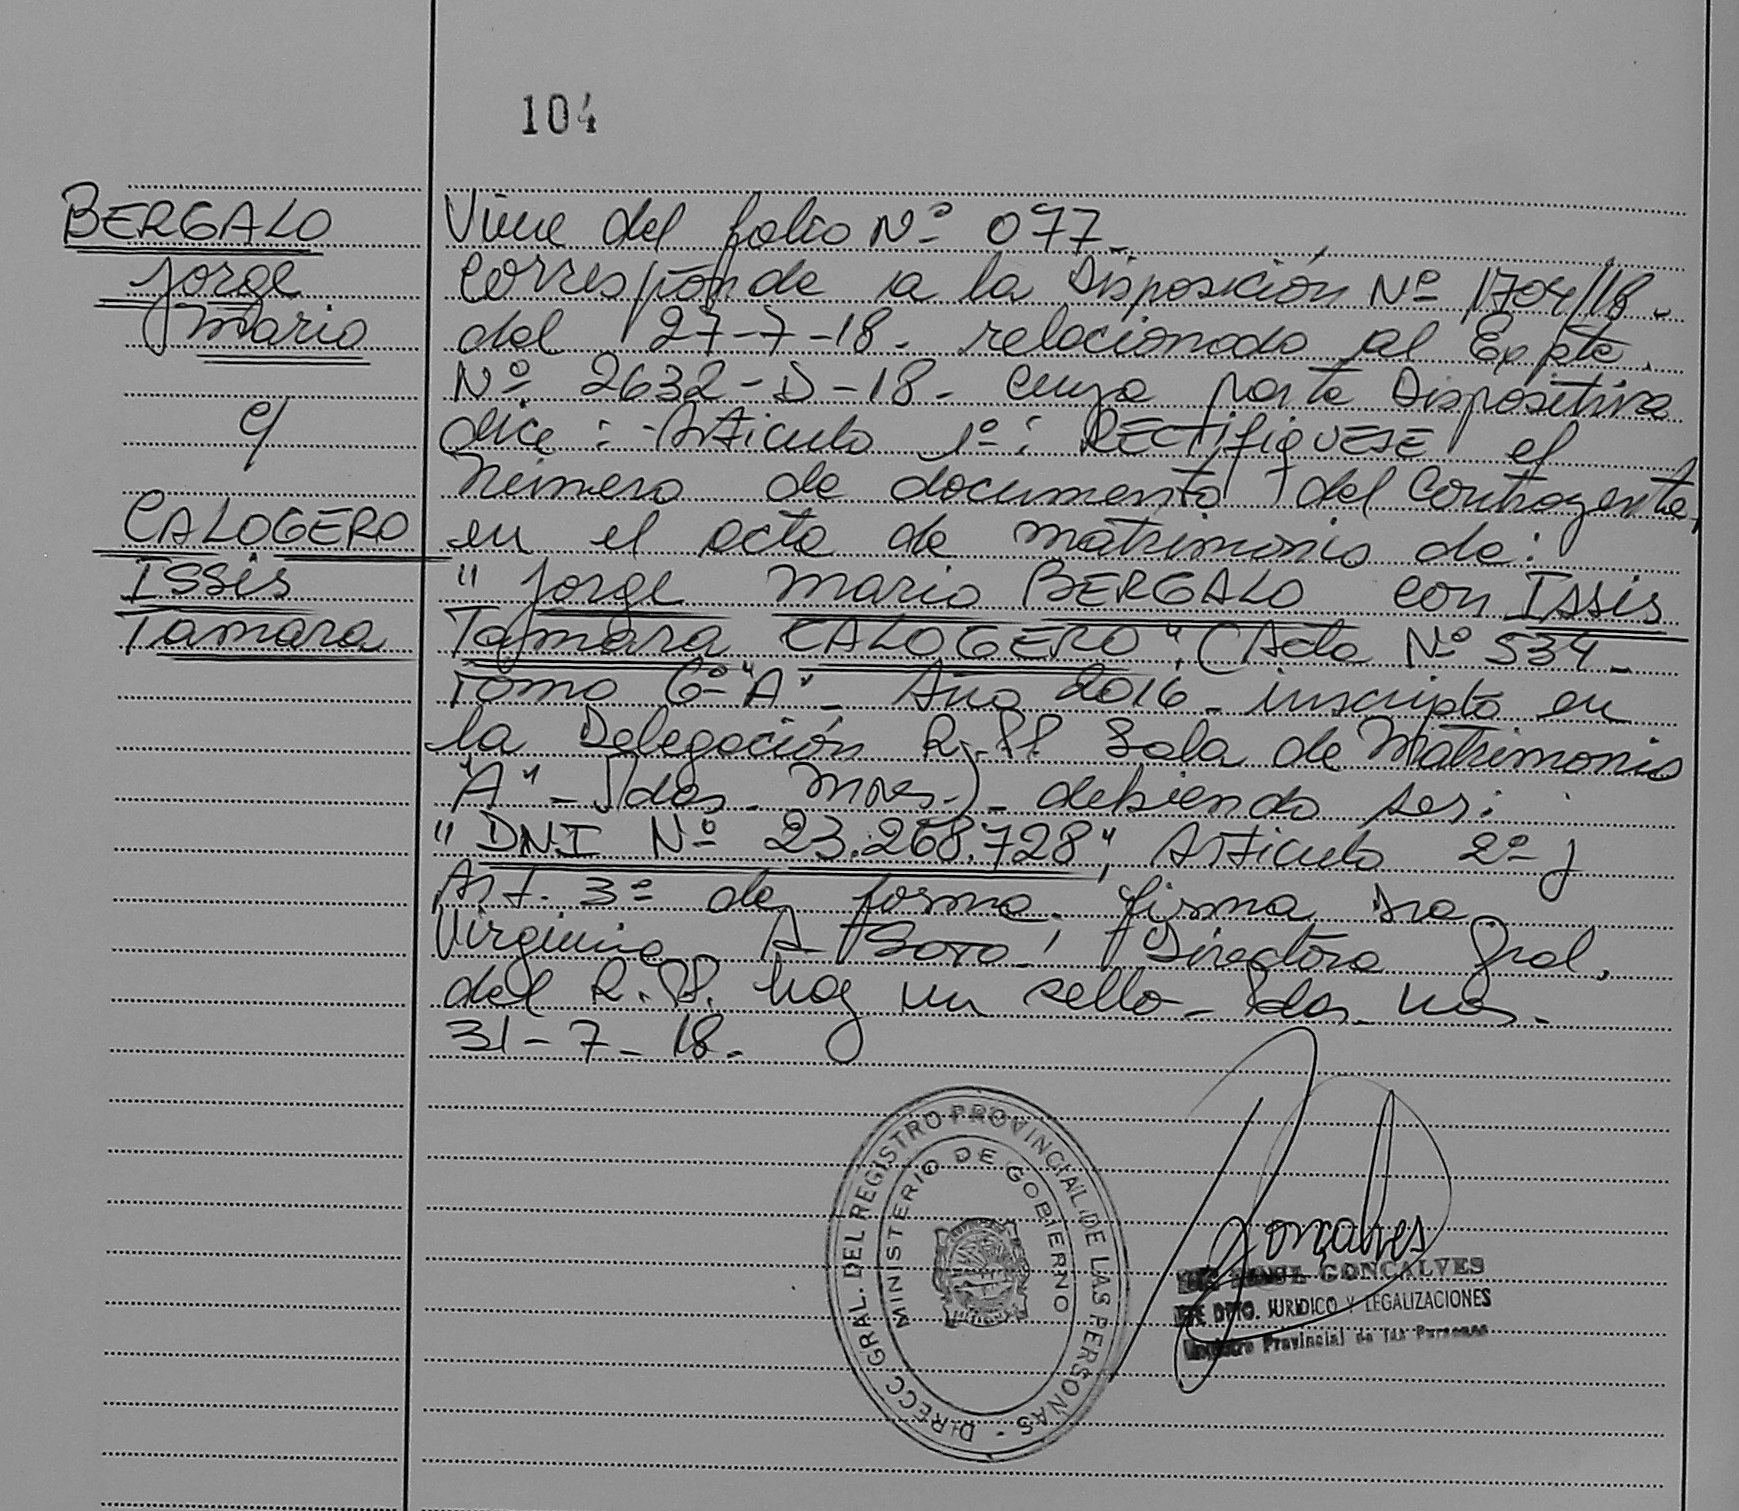 104
BERGALO
Jorge
Mario
c/
CALOGERO
Issis
Tamara
Viene del folio Nº 077-
Corresponde a la Disposición Nº 1704/18-
del 27-7-18- relacionado al Expte.
Nº 2632-D-18- cuya parte Dispositiva
dice: Articulo 1º: RECTifiQUESE el
Número de documento del Contrayente,
en el acta de matrimonio de:
"Jorge Mario BERGALO con Issis
Tamara CALOGERO". (Acta Nº 534-
Tomo 6º "A"- Año 2016- inscripta en
la Delegación R.P.P. Sala de Matrimonio
"A"- Pdas. Mnes.)- debiendo ser:
"DNI Nº 23.268.728", Articulo 2º y
Art. 3º de forma. firma Dra
Virginia A Soto- Directora Gral.
del R.P.P. hay un sello- Pdas. Mnes.
31-7-18-
DIRECC. GRAL. DEL REGISTRO PROVINCIAL DE LAS PERSONAS -
MINISTERIO DE GOBIERNO
Gonçalves
GONCALVES
DPTO. JURIDICO Y LEGALIZACIONES
Registro Provincial de las Personas